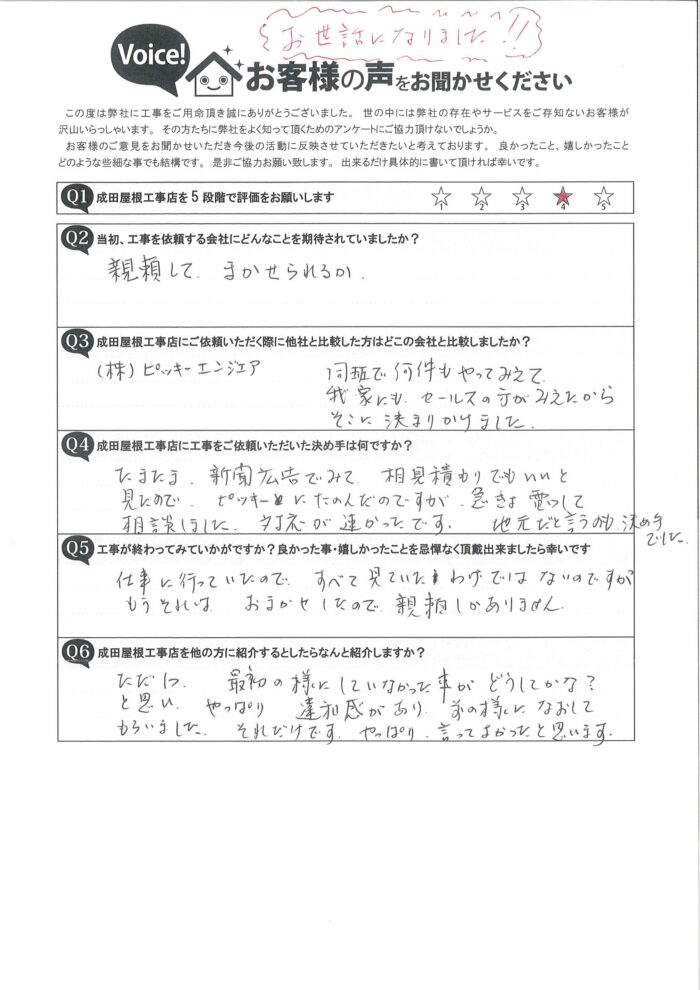 お世話になりました!!
Voice!
お客様の声をお聞かせください
この度は弊社に工事をご用命頂き誠にありがとうございました。 世の中には弊社の存在やサービスをご存知ないお客様が
沢山いらっしゃいます。 その方たちに弊社をよく知って頂くためのアンケートにご協力頂けないでしょうか。
お客様のご意見をお聞かせいただき今後の活動に反映させていただきたいと考えております。 良かったこと、嬉しかったこと
どのような些細な事でも結構です。 是非ご協力お願い致します。 出来るだけ具体的に書いて頂ければ幸いです。
Q1 成田屋根工事店を5段階で評価をお願いします
1 2 3 4 5
Q2 当初、工事を依頼する会社にどんなことを期待されていましたか?
親頼して、まかせられるか。
Q3 成田屋根工事店にご依頼いただく際に他社と比較した方はどこの会社と比較しましたか?
(株)ピッキーエンジェア
同班で何件もやってみえて、
我家にも、セールスの方がみえたから
そこに決まりかけました。
Q4 成田屋根工事店に工事をご依頼いただいた決め手は何ですか?
たまたま、新聞広告でみて、相見積もりでもいいと
見たので、ピッキーにたのんだのですが、急きょ電話して
相談しました。対応が速かったです。 地元だと言うのも、決め手
でした。
Q5 工事が終わってみていかがですか?良かった事・嬉しかったことを忌憚なく頂戴出来ましたら幸いです
仕事に行っていたので、すべて見ていたわけではないのですが
もうそれは、おまかせしたので、親頼しかありません。
Q6 成田屋根工事店を他の方に紹介するとしたらなんと紹介しますか?
ただ1つ、最初の様にしていなかった事がどうしてかな?
と思い、やっぱり違和感があり、前の様になおして
もらいました。それだけです。やっぱり、言ってよかったと思います。